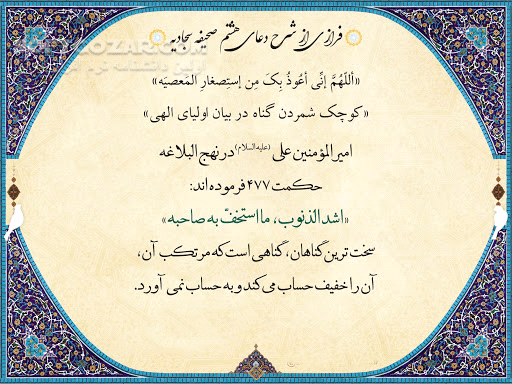 فرازی از شرح دعای هشتم صحیفه سجادیه
«اَللّهُمَّ إنّی أعُوذُ بِکَ مِن إستِصغارِ المَعصیَه»
«کوچک شمردن گناه در بیان اولیای الهی»
امیرالمؤمنین علی (علیه‌السلام) در نهج البلاغه
حکمت ۴۷۷ فرموده‌اند:
«اشد الذنوب، ما استخفّ به صاحبه»
سخت‌ترین گناهان، گناهی است که مرتکب آن،
آن را خفیف حساب می‌کند و به حساب نمی‌آورد.